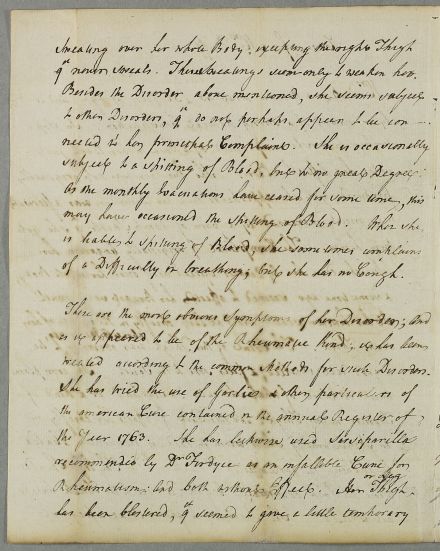 Sweating over her whole Body, excepting the right Thigh
qch never sweats. These Sweatings seem only to weaken her.
Besides the Disorder above mentioned, she seems subject
to other Disorders, qch do not perhaps appear to be con-
nected to her principal Complaint. She is occasionally
subject to a Spitting of Blood, but to no great Degree.
As the monthly Evacuations have ceased for some time, this
may have occasioned the Spitting of Blood. When she
is liable to Spitting of Blood, she sometimes complains
of a Difficulty in breathing; but she has no Cough.
These are the most obvious Symptoms of her Disorder; And
as it appeared to be of the Rheumatic kind, it has been
treated according to the common Methods for such Disorders.
She has tried the use of Garlic & other particulars of
the american Cure contained in the annual Register of
the Year 1763. She has likewise used Sarsaparilla
recommended by Dr Fordyce as an infallible Cure for
Rheumatism; and both without Effect. Her Thigh or Leg
has been blistered, qch seemed to give a little temporary